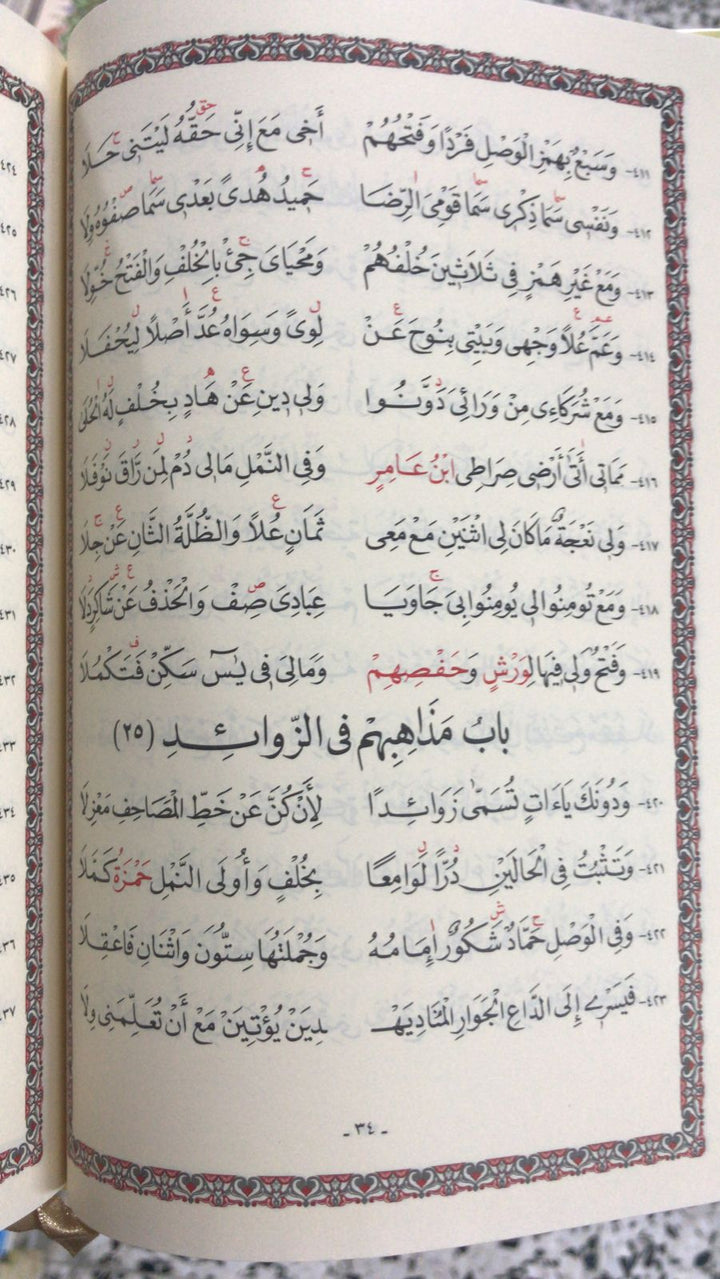 ٤١١- وَسَبْعٌ بِهَمْزِ الْوَصْلِ فَرْدًا وَفَتْحُهُمْ أَخِى مَعَ إِنِّى حَقُّهُ لَيْتَنِى حَلَا
٤١٢- وَنَفْسِى سَمَا ذِكْرِى سَمَا قَوْمِىَ الرِّضَا حَمِيدُ هُدىً بَعْدِى سَمَا صَفْوُهُ وِلَا
٤١٣- وَمَعْ غَيْرِ هَمْزٍ فِى ثَلَاثِينَ خُلْفُهُمْ وَمَحْيَاىَ جِئْ بِالْخُلْفِ وَالْفَتْحُ خُوِّلَا
٤١٤- وَعَمَّ عُلاً وَجْهِى وَبَيْتِى بِنُوحَ عَنْ لِوىً وَسِوَاهُ عُدَّ أَصْلًا لِيُحْفَلَا
٤١٥- وَمَعْ شُرَكَاءِى مِنْ وَرَائِىَ دَوَّنُوا وَلِى دِينِ عَنْ هَادٍ بِخُلْفٍ لَهُ الْحُلَى
٤١٦- مَمَاتِى أَتَى أَرْضِى صِرَاطِى ابْنُ عَامِرٍ وَفِى النَّمْلِ مَالِى دُمْ لِمَن رَّاقَ نَوْفَلَا
٤١٧- وَلِى نَعْجَةٌ مَا كَانَ لِى اثْنَيْنِ مَعْ مَعِى ثَمَانٍ عُلاً وَالظُّلَّةُ الثَّانِ عَنْ جِلَا
٤١٨- وَمَعْ تُومِنُوا لِى يُومِنُوا بِىَ جَاوَيَا عِبَادِىَ صِفْ وَالْحَذْفُ عَنْ شَاكِرٍ دَلَا
٤١٩- وَفَتْحُ وَلِى فِيهَا لِوَرْشٍ وَحَفْصِهِمْ وَمَالِىَ فِى يٰسٓ سَكِّنْ فَتَكْمُلَا
بابُ مَذَاهِبِهِمْ فى الزّوائِدِ (٢٥)
٤٢٠- وَدُونَكَ يَاءَاتٍ تُسَمَّى زَوَائِدًا لِأَنْ كُنَّ عَنْ خَطِّ الْمَصَاحِفِ مَعْزِلَا
٤٢١- وَتَثْبُتُ فِى الْحَالَيْنِ دُرًّا لَوَامِعًا بِخُلْفٍ وَأُولَى النَّمْلِ حَمْزَةُ كَمَّلَا
٤٢٢- وَفِى الْوَصْلِ حَمَّادٌ شَكُورٌ إِمَامُهُ وَجُمْلَتُهَا سِتُّونَ وَاثْنَانِ فَاعْقِلَا
٤٢٣- فَيَسْرِى إِلَى الدَّاعِ الْجَوَارِ الْمُنَادِ يَهْـ ـدِيَنْ يُؤْتِيَنْ مَعْ أَنْ تُعَلِّمَنِى وِلَا
- ٣٤ -
٤٢٤
٤٢٥
٤٢٦
٤٢٧
٤٢٨
٤٢٩
٤٣٠
٤٣١
٤٣٢
٤٣٣
٤٣٤
٤٣٥
٤٣٦
٤٣٧